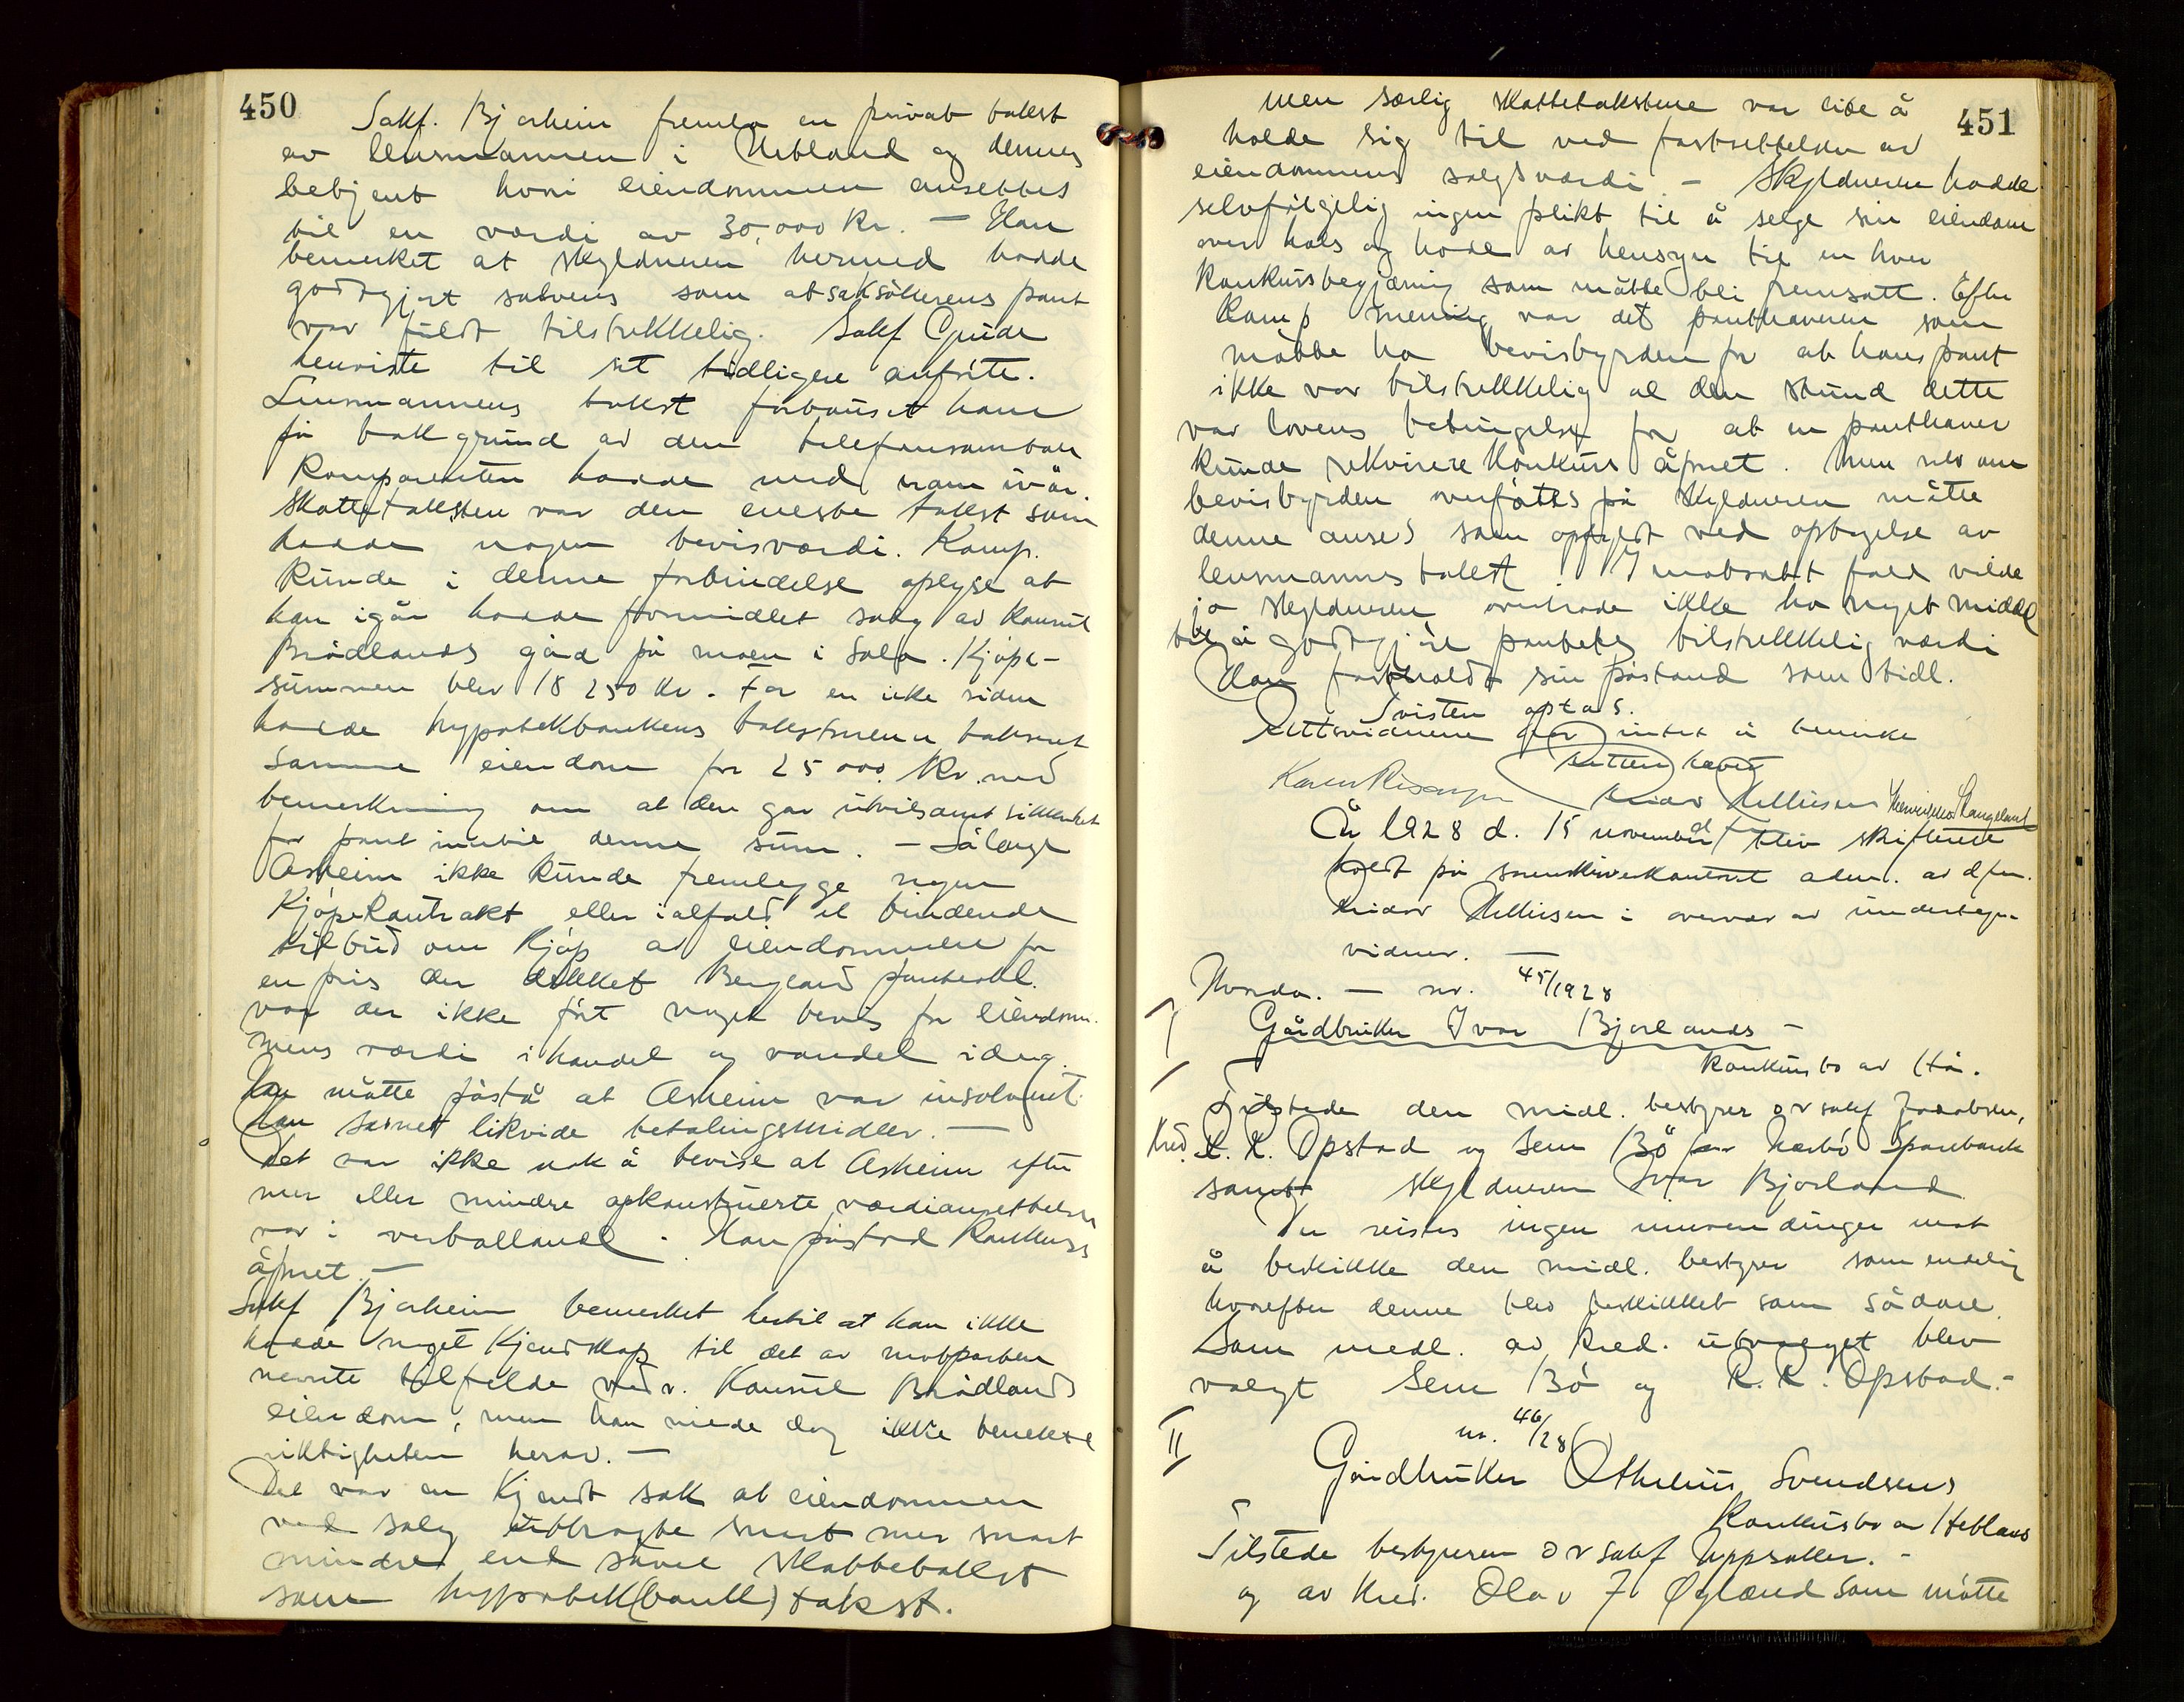 450
Sakf. Bjorheim fremla en privat takst
av lensmannen i Hetland og dennes
betjent hvori eiendommen ansettes
til en værdi av 30,000 kr. — Han
bemerket at skyldneren hermed hadde
godtgjort solvens som at saksökerens pant
var fuldt tilstrekkelig. Sakf Gude
henviste til sit tidligere anförte.
Lensmannens takst forbauset ham
på bakgrund av den telefonsamtale
Komparenten hadde med ham igår.
Skattetaksten var den eneste takst som
hadde nogen bevisværdi. Komp.
kunde i denne forbindelse oplyse at
han igår hadde formidlet salg av konsul
Brådlands gård på moen i Sola. Kjöpe-
summen blev 18 250 kr. For en uke siden
hadde hypotekbankens takstmenn taksert
samme eiendom for 25 000 kr. med
bemerkning om at den gav utvilsomt sikkerhet
for pant inntil denne sum. — Så lenge
Asheim ikke kunde fremlegge nogen
Kjöpekontrakt eller ialfald et bindende
tilbud om kjöp av eiendommen for
en pris der dekket Bergland panteobl.
var der ikke fört noget bevis for eiendom-
mens værdi i handel og vandel idag.
Han måtte påstå at Asheim var insolvent.
Han savnet likvide betalingsmidler. —
Det var ikke nok å bevise at Asheim efter
mer eller mindre opkonstruerte værdiansettelser
var i verbalance. Han påstod konkurs
åpnet. —
Sakf Bjorheim bemerket hertil at han ikke
hadde noget kjendskap til det av motparten
nevnte tilfelde vedr. Konsul Brådlands
eiendom, men han vilde dog ikke benekte
riktigheten herav. —
Det var en kjendt sak at eiendommen
ved salg utbragte snart mer snart
mindre end såvel skattetakst
som hypotek(bank)takst.
451
men særlig skattetakstene var eide å
holde sig til ved fastsettelsen av
eiendommens salgsværdi. — Skyldneren hadde
selvfölgelig ingen plikt til å selge sin eiendom
over hals og hode av hensyn til en hver
konkursbegjæring som måtte bli fremsatt. Efter
Komp mening var det panthaveren som
måtte ha bevisbyrden for at hans pant
ikke var tilstrekkelig al den stund dette
var lovens betingelse for at en panthaver
kunde rekvirere konkurs åpnet. Men selv om
bevisbyrden överföttes på skyldneren måtte
denne anses som opfyldt ved optagelse av
lensmannes takst. I motsatt fald vilde
jo skyldneren overhode ikke ha noget middel
til å godtgjöre pantets tilstrekkelig værdi
Han fastholdt sin påstand som tidl.
Tvisten optas.
Rettsvidnene fant intet å bemerke
Retten hevet
Å 1928 d. 15 november blev skifterett
holdt på sorenskriverkontoret adm. av dfm.
Reidar Mellusen i overvær av undertegn.
vidner. —
— nr. 45/1928
I
Gårdbruker Ivar Bjorlands —
konkursbo av Hå.
Tilstede den midl. bestyrer orsakf Jacobsen,
kred. R. R. Opstad og Sem Bö for Nærbö Sparebank
samt skyldneren Ivar Bjorland
Der reistes ingen innvendinger mot
å beskikke den midl. bestyrer som endelig
hvorefter denne blev beskikket som sådan.
Som medl. av kred. utvalget blev
valgt Sem Bö og R. R. Opstad. —
II
nr. 46/28
Gårdbruker Othelius Svendsens
Konkursbo av Hetland
Tilstede bestyreren orsakf Uppsaker. —
og av kred. Olav J. Øgland som mötte